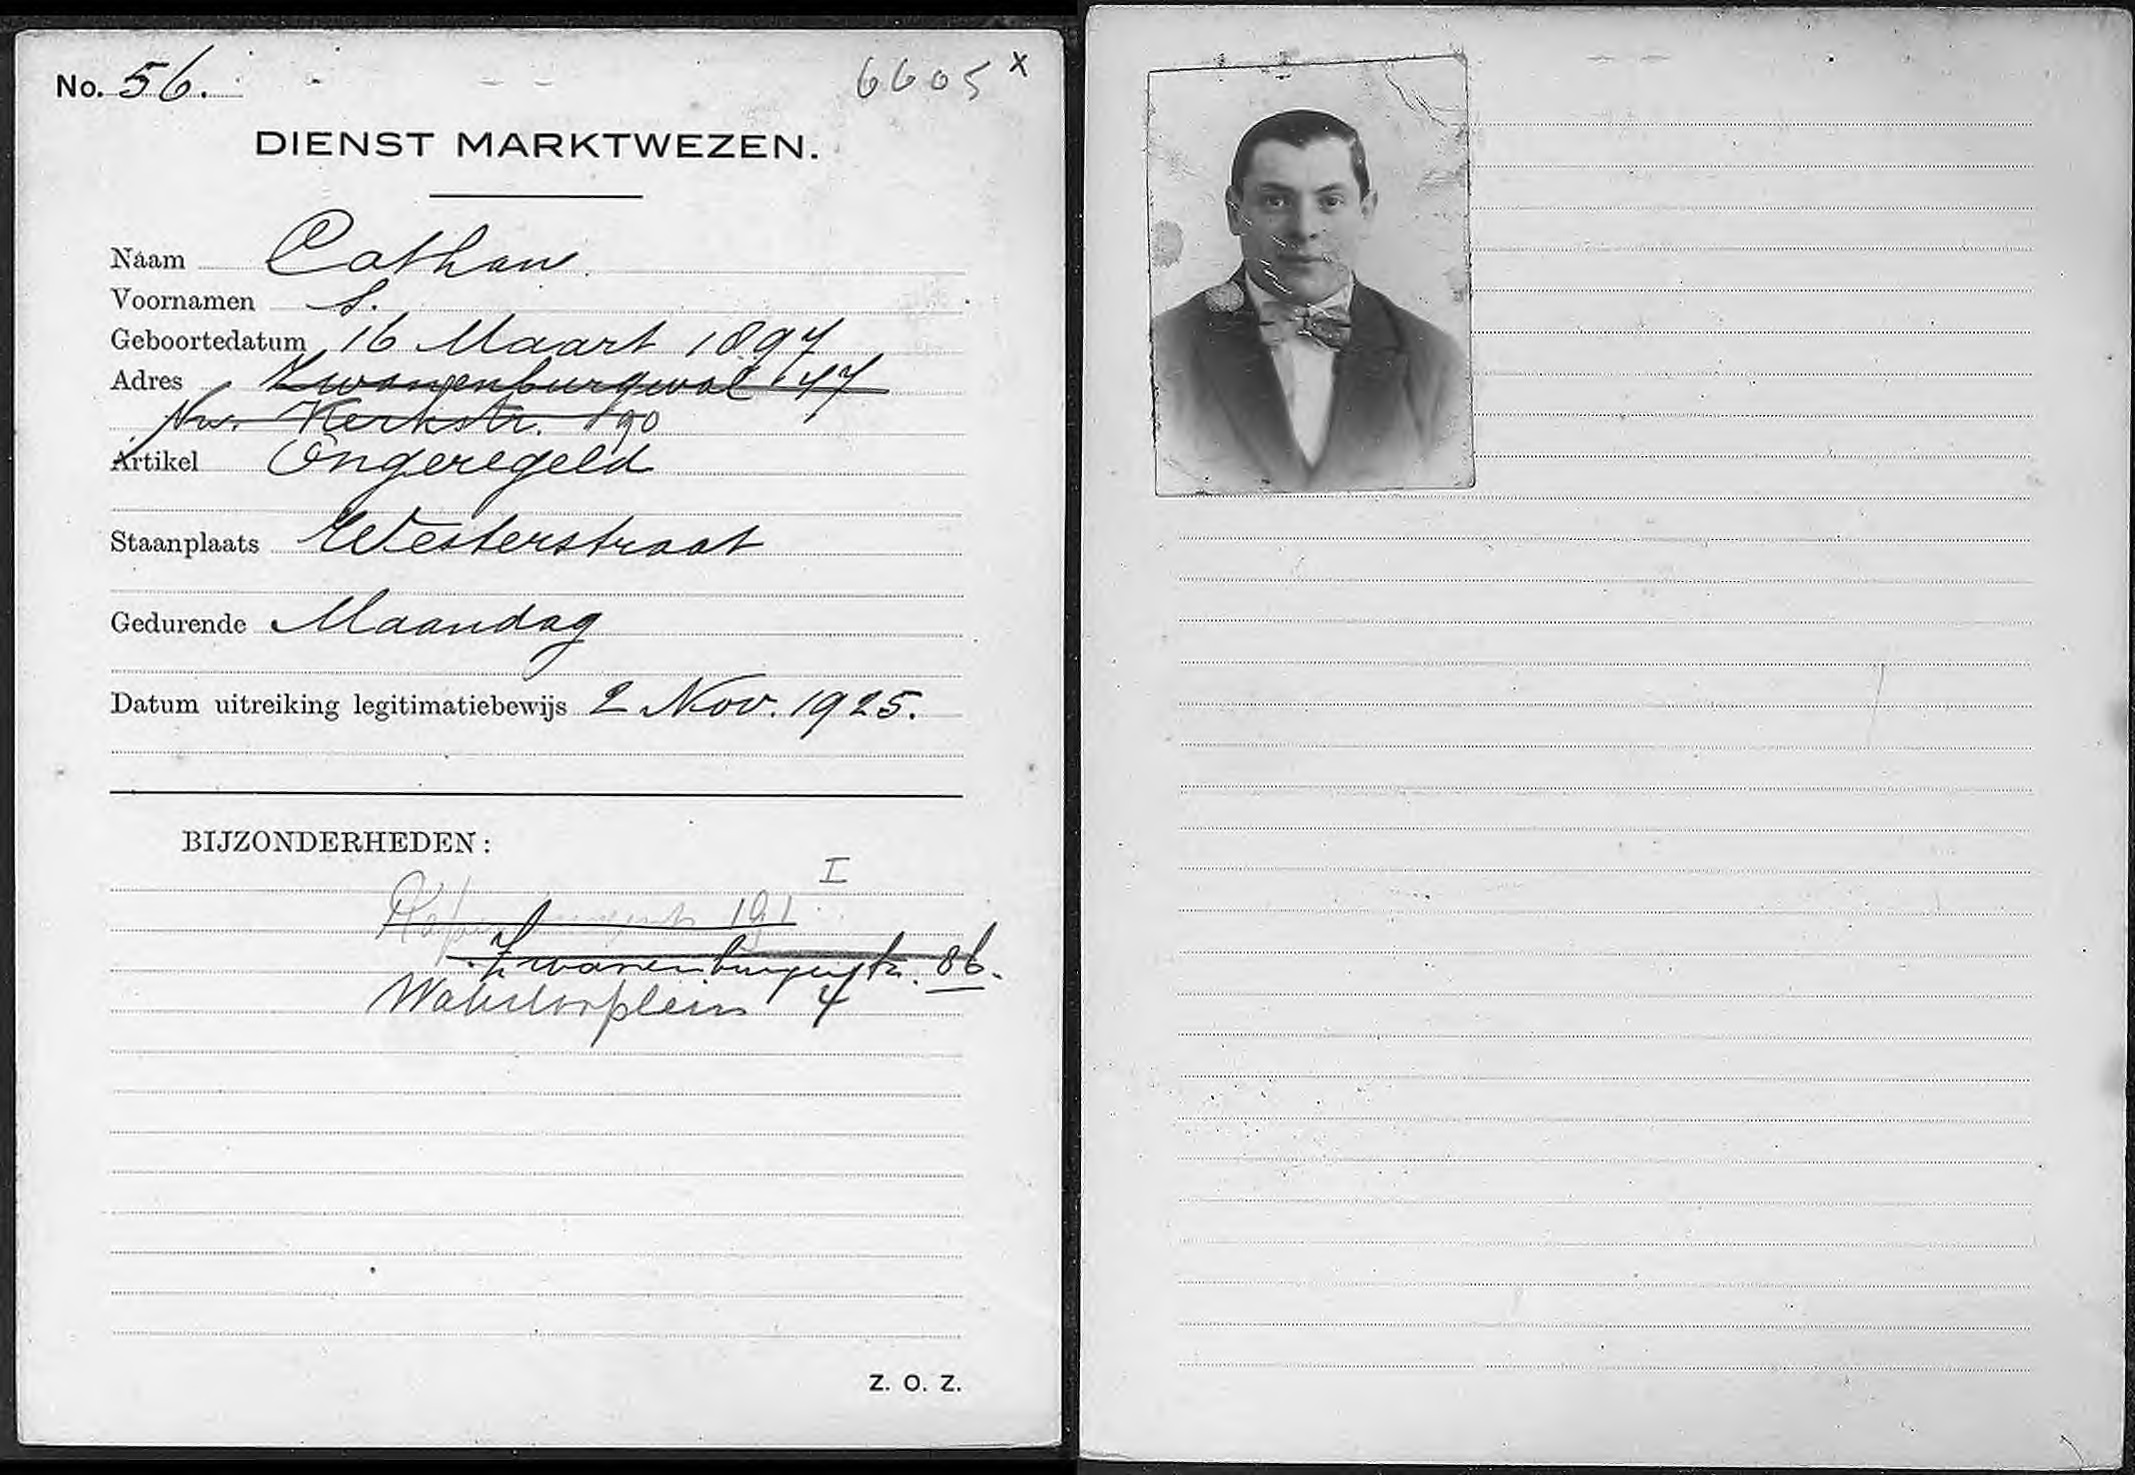 No. 56. 6605 x
DIENST MARKTWEZEN.
Naam Cathan.
Voornamen S.
Geboortedatum 16 Maart 1897
Adres Zwanenburgwal 47
Nw. Kerkstr. 190
Artikel Ongeregeld
Staanplaats Westerstraat
Gedurende Maandag
Datum uitreiking legitimatiebewijs 2 Nov. 1925.
BIJZONDERHEDEN:
I
191
Zwanenburgerstr. 86.
Waterlooplein 4
Z. O. Z.